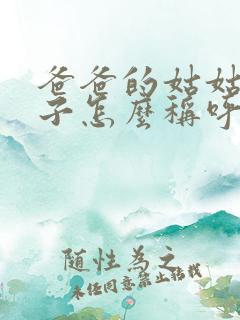 爸爸的姑姑
子怎麼稱呼
隨性為之
未经同意禁止转载